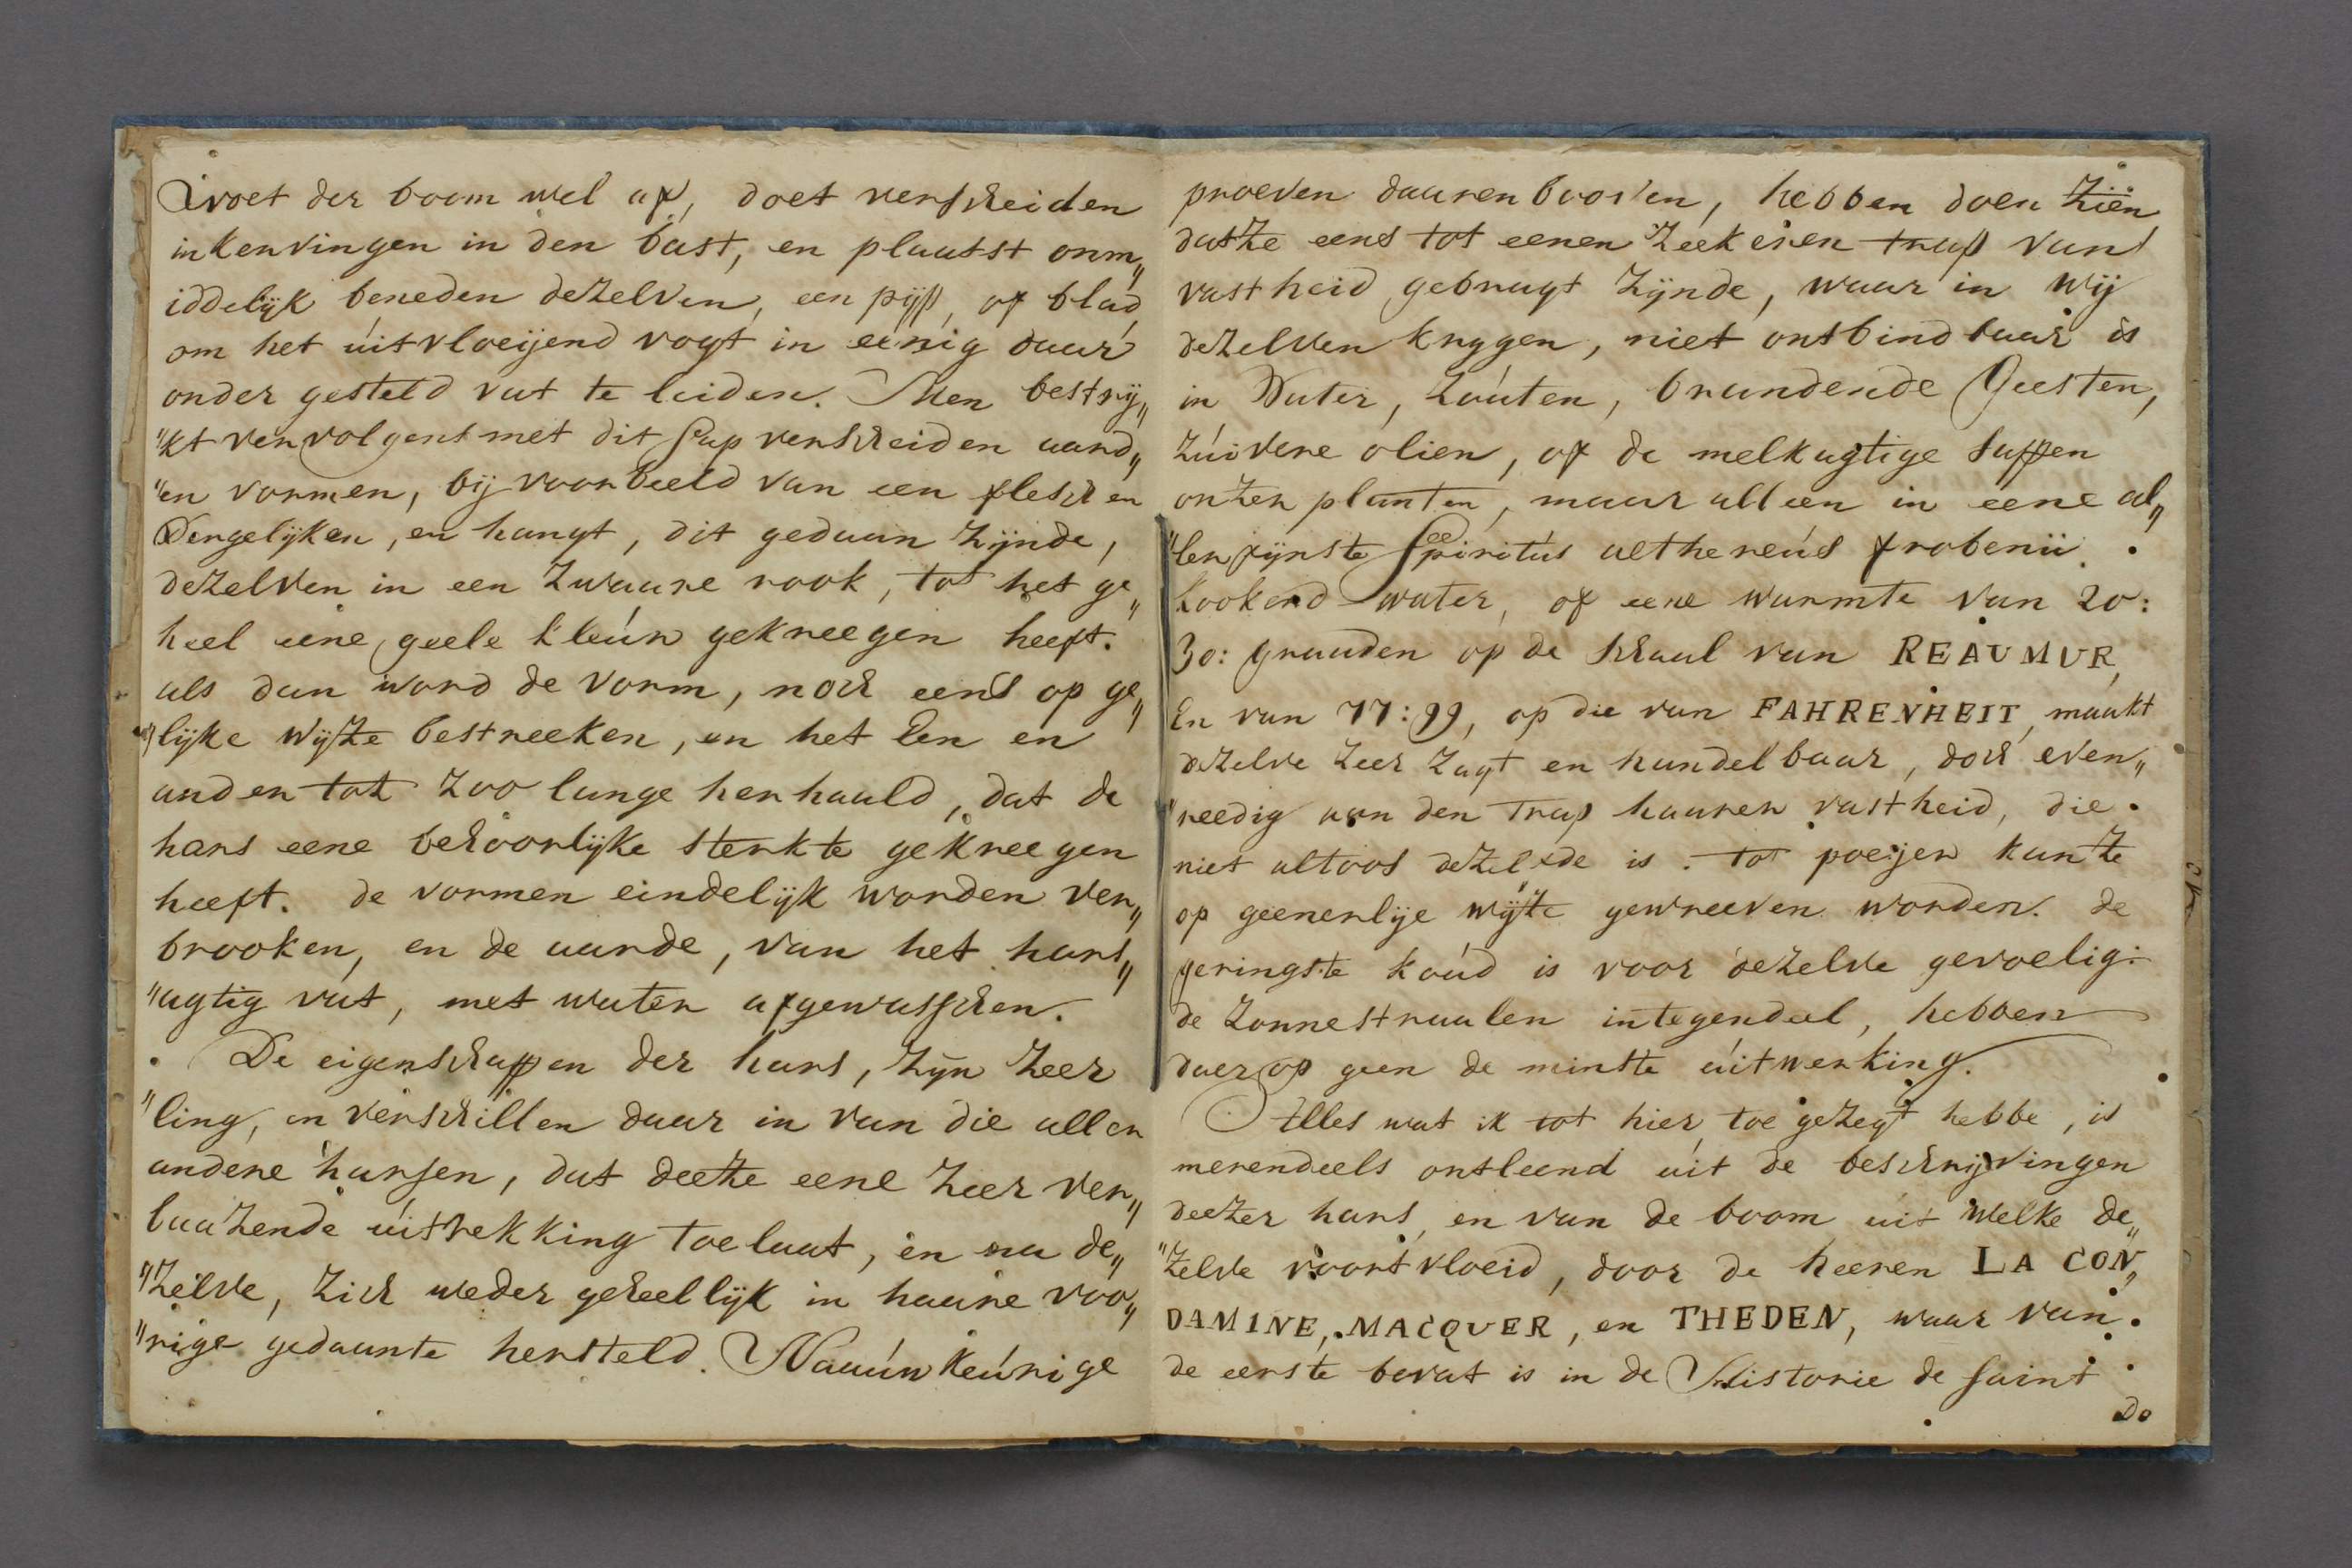 voet der boom wel af, doet verscheiden
inkervingen in den bast, en plaatst onm„
iddelijk beneden dezelven, een pijp, of blad
om het úitvloeijend vogt in eenig daar
onder gesteld vat te leiden. Men bestrij„
„kt vervolgens met dit sap verscheiden aard„
„en vormen, bij voorbeeld van een flesch en
Dergelijken, en hangt, dit gedaan zijnde,
dezelven in een zwaare rook, tot het ge„
heel eene geele kleúr gekreegen heeft.
als dan word de vorm, noch eens op ge„
„lijke wijze bestreeken, en het Een en
ander tot zoo lange herhaald, dat de
hars eene behoorlijke sterkte gekreegen
heeft. de vormen eindelijk worden ver„
brooken, en de aarde, van het hars„
„agtig vat, met water afgewasschen.
De eigenschappen der hars, zijn zeer
„ling, en verschillen daar in van die aller
andere harsen, dat deeze eene zeer ver„
baazende úitrekking toelaat, en na de„
„zelve, zich weder geheellijk in haare voo„
„rige gedaante hersteld. Naaúwkeúrige
proeven daarenboven, hebben doen zien
datze eens tot eenen zeekeren trap van
vastheid gebragt zijnde, waar in wij
dezelven krygen, niet ontbindbaar is
in Water, zoúten, brandende Geesten,
zúivere olien, of de melkagtige sappen
onzer planten, maar alleen in eene al„
„lerfijnste Spiritús aethereús frobenii.
kookend water, of eene warmte van 20:
30: graaden op de schaal van REAUMUR,
En van 77:99, op die van FAHRENHEIT, maakt
dezelve zeer zagt en handelbaar, doch even„
„reedig aan den trap haarer vastheid, die
niet altoos dezelfde is. tot poeijer kan ze
op geenerlije wijze gewreeven worden. de
geringste koúd is voor dezelve gevoelig:
de zonnestraalen integendeel, hebben
daer op geen de minste úitwerking.
Alles wat ik tot hier toe gezegt hebbe, is
merendeels ontleend úit de beschrijvingen
deezer hars, en van de boom uit welke de„
„zelve voortvloeid, door de heeren LA CON„
DAMINE, MACQUER, en THEDEN, waar van
de eerste bevat is in de Historie de saint
Do